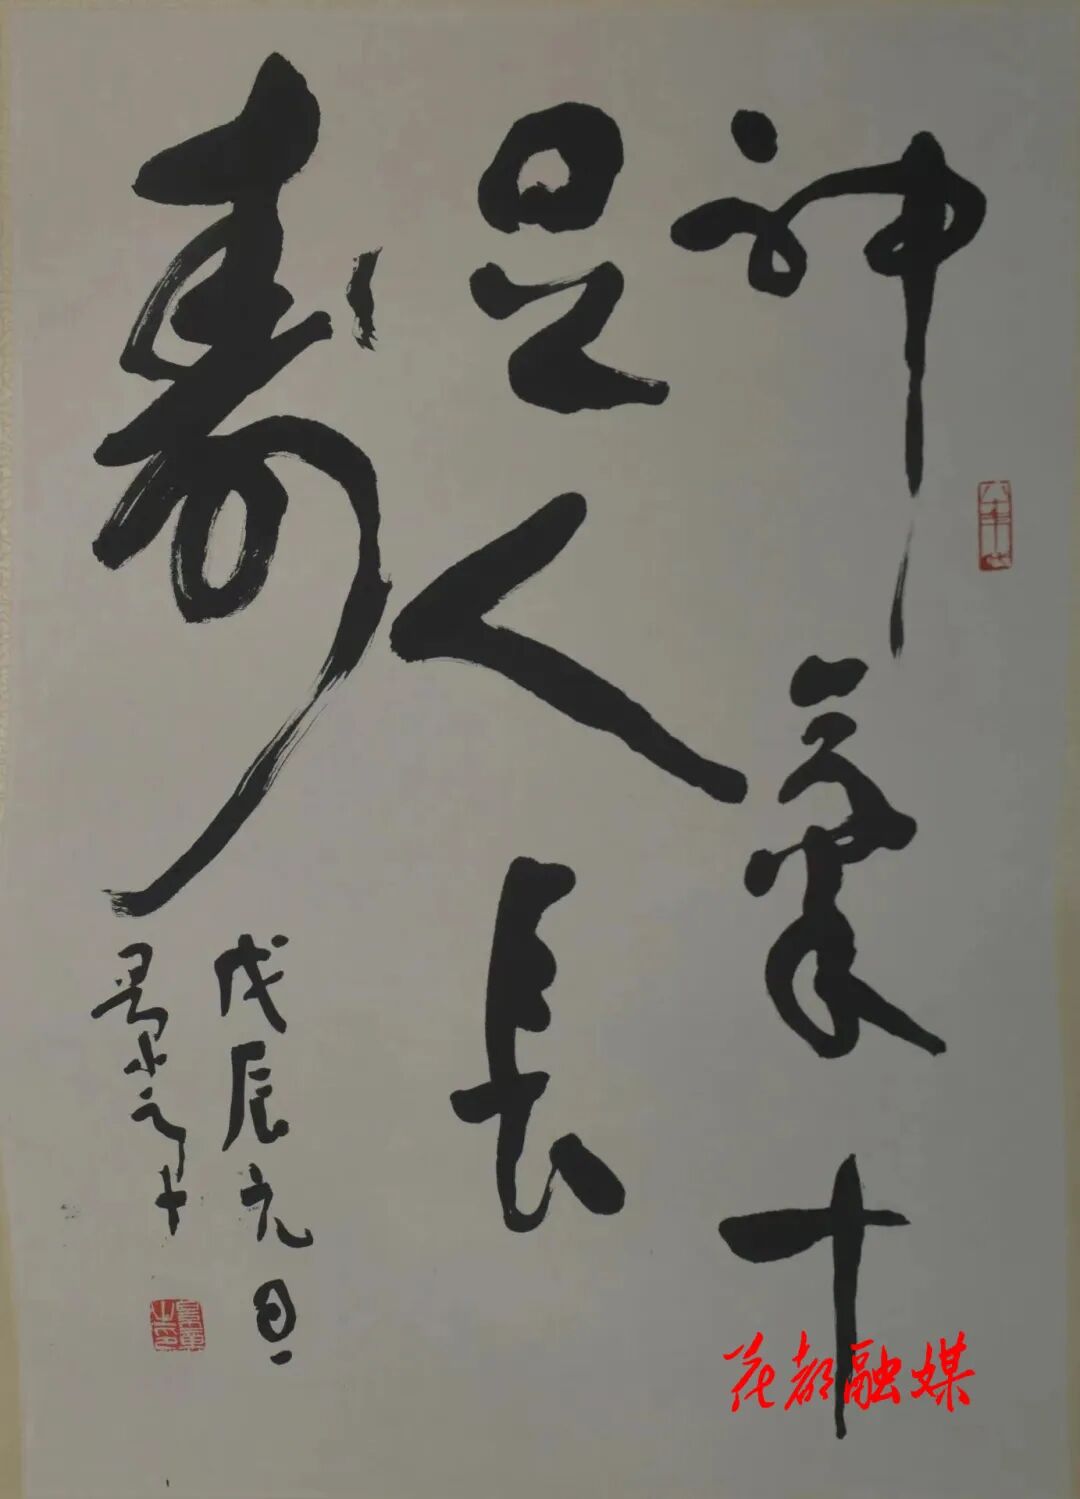 神氣十
足人長
壽
戊辰元旦
花都融媒